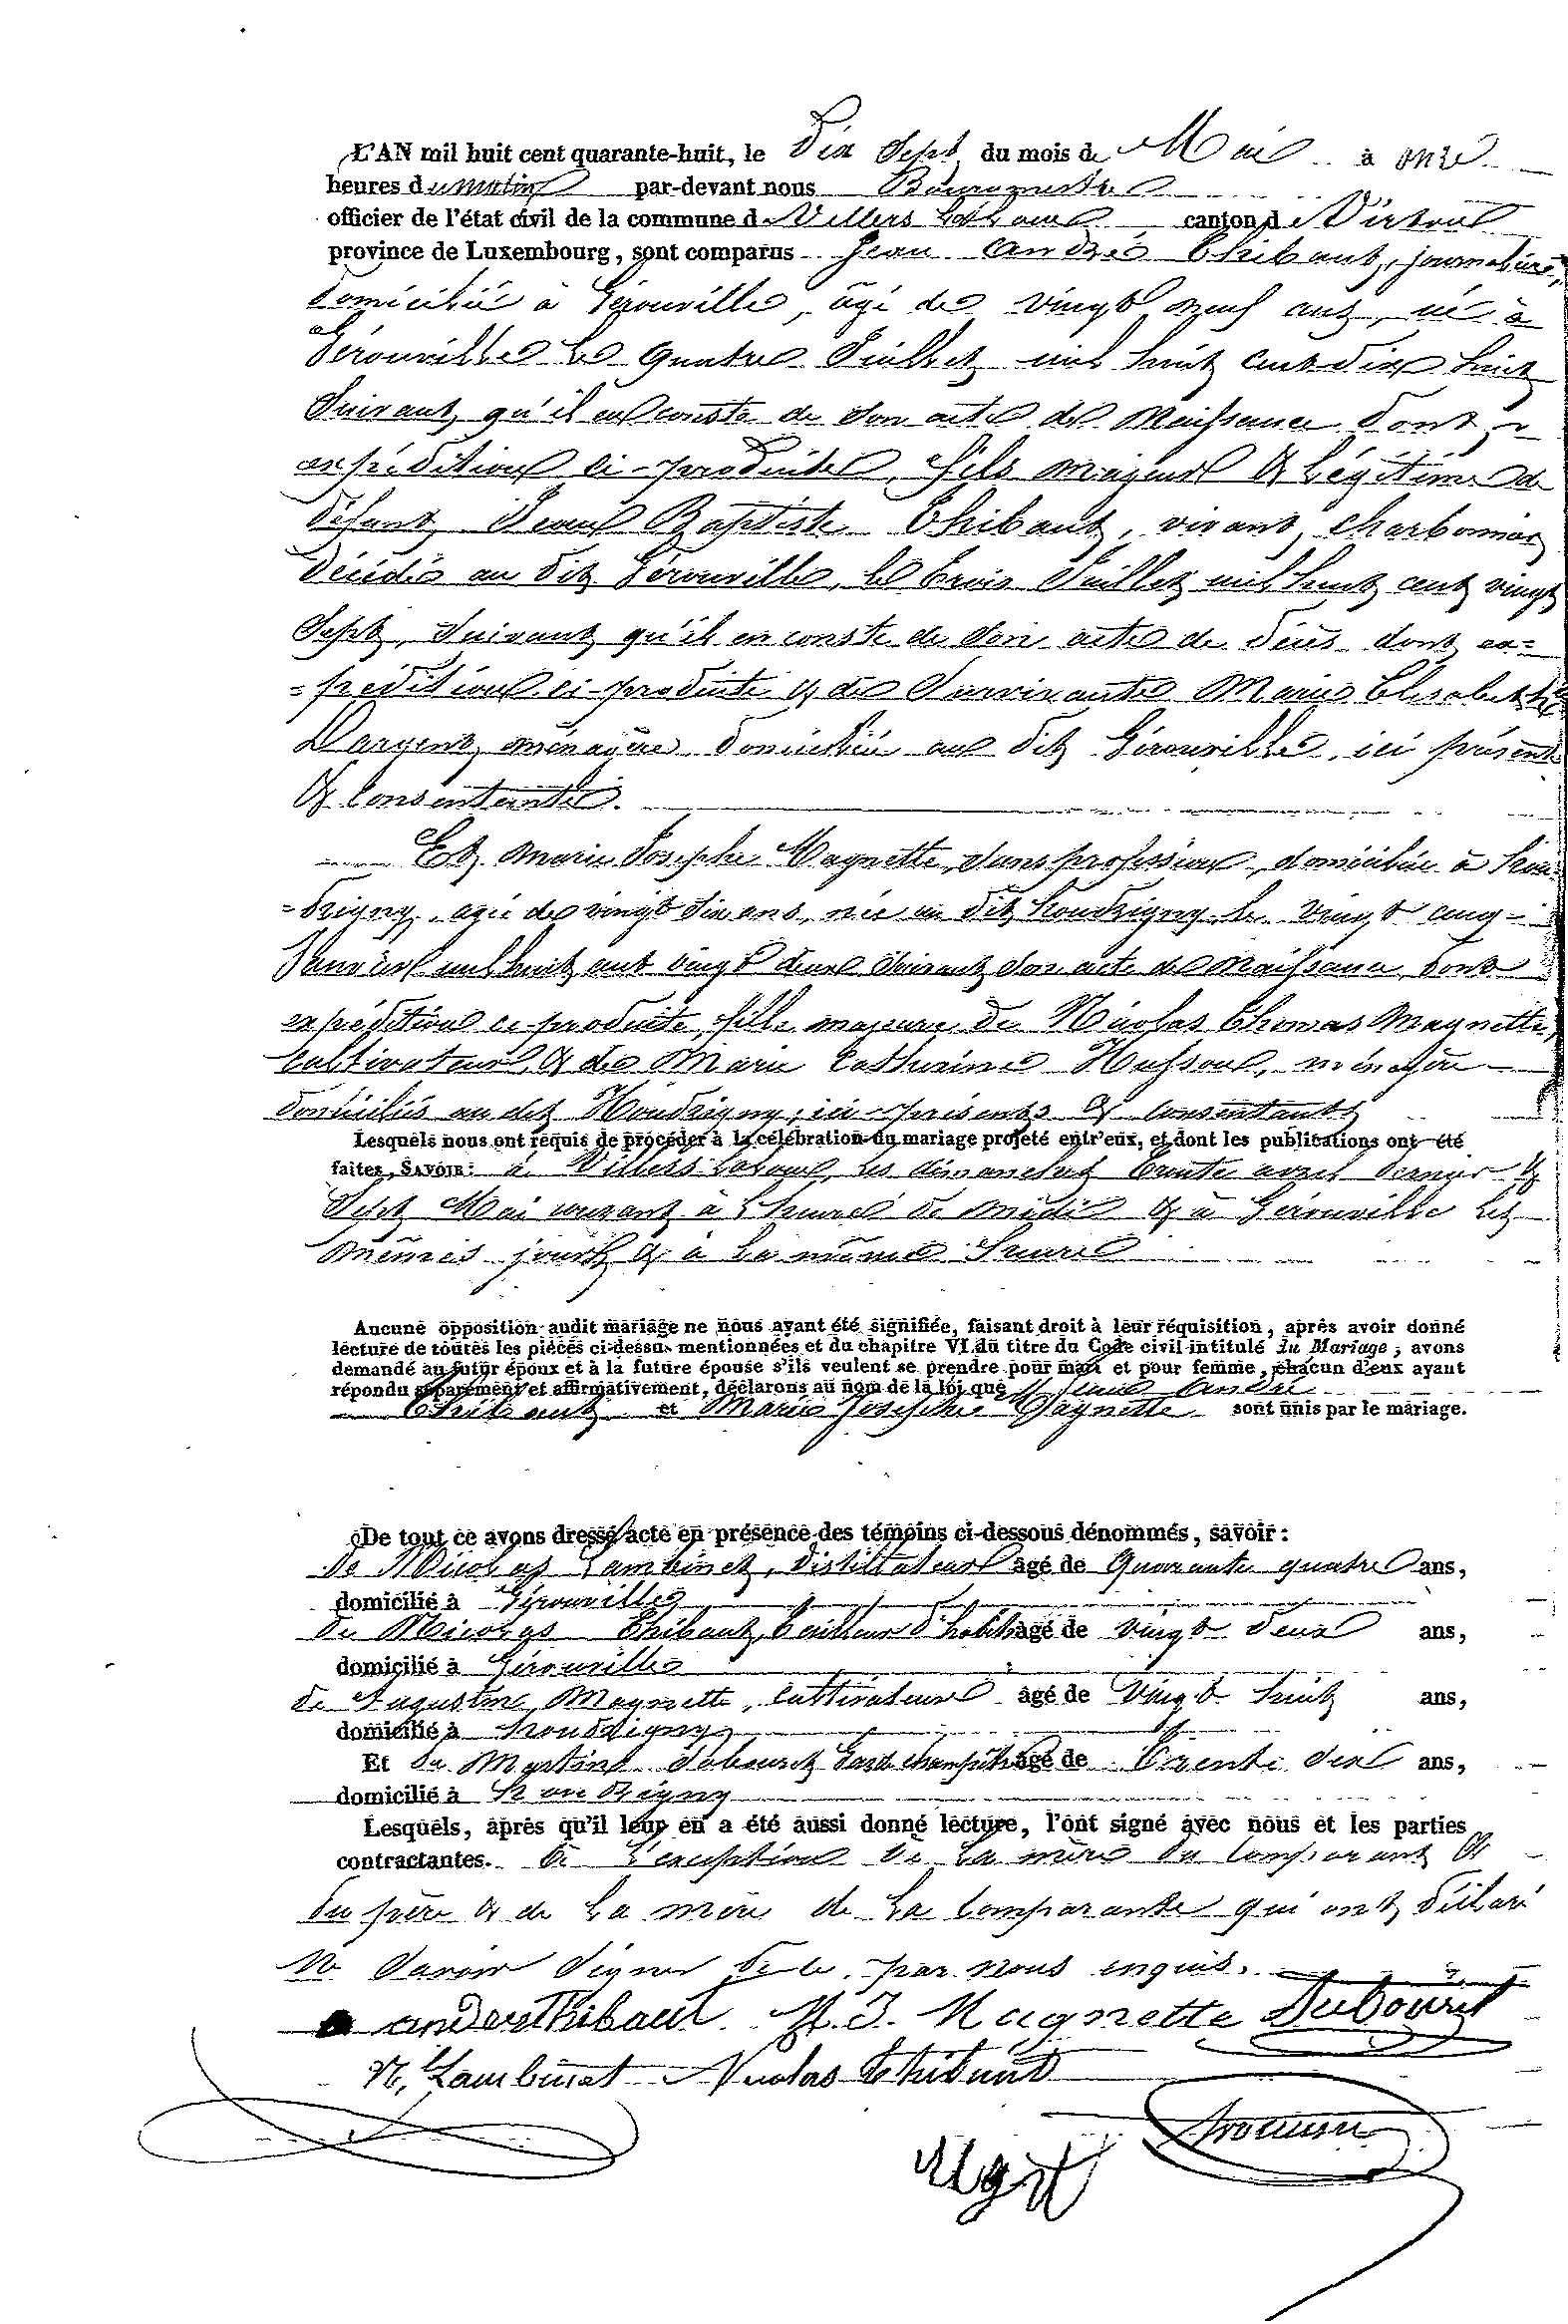 L'AN mil huit cent quarante-huit, le Dix Sept du mois de Mai à onze
heures du matin par-devant nous Bourgmestre
officier de l'état civil de la commune de Villers la Loue canton de Virton
province de Luxembourg, sont comparus Jean André Thibaut, journalier,
domicilié à Gérouville, âgé de vingt neuf ans, né à
Gérouville le quatre Juillet mil huit cent dix huit
Suivant qu'il en conste de Son acte de Naissance dont
expédition ci-produite, fils majeur & légitime de
défunt Jean Baptiste Thibaut, vivant, charbonnier
décédé au dit Gérouville, le trois Juillet mil huit cent vingt
Sept, Suivant qu'il en conste de Son acte de décès dont ex=
=pédition ci-produite & de Survivante Marie Elisabethe
Dargent, ménagère domiciliée au dit Gérouville, ici présente
& Consentante.
Et Marie Josephe Magnette, Sans profession, domiciliée à hou=
=drigny, agée de vingt Six ans, née au dit houdrigny le vingt cinq
Janvier mil huit cent vingt deux Suivant Son acte de Naissance, dont
expédition ci-produite, fille majeure de Nicolas Thomas Magnette,
Cultivateur, & de Marie Catherine Husson, ménagère
domiciliés au dit Houdrigny, ici-présents & Consentants
Lesquels nous ont requis de procéder à la célébration du mariage projeté entr'eux, et dont les publications ont été
faites, SAVOIR: à Villers la Loue, les dimanches trente avril dernier &
Sept Mai courant à l'heure de midi & à Gérouville les
mêmes jours & à la même heure
Aucune opposition audit mariage ne nous ayant été signifiée, faisant droit à leur réquisition, après avoir donné
lecture de toutes les pièces ci-dessus mentionnées et du chapitre VI du titre du Code civil intitulé du Mariage; avons
demandé au futur époux et à la future épouse s'ils veulent se prendre pour mari et pour femme, chacun d'eux ayant
répondu séparément et affirmativement, déclarons au nom de la loi que Jean André
Thibaut et Marie Josephe Magnette sont unis par le mariage.
De tout ce avons dressé acte en présence des témoins ci-dessous dénommés, savoir:
De Nicolas Lambinet, distillateur âgé de Quarante quatre ans,
domicilié à Gérouville
De Nicolas Thibaut, tailleur d'habits âgé de vingt deux ans,
domicilié à Gérouville
de Augustin Magnette, Cultivateur âgé de vingt huit ans,
domicilié à houdrigny
Et de Martin Dubouret Garde champêtre âgé de Trente dix ans,
domicilié à houdrigny
Lesquels, après qu'il leur en a été aussi donné lecture, l'ont signé avec nous et les parties
contractantes. à l'exception de la mère du Comparant &
du père & de la mère de la Comparante qui ont déclaré
ne Savoir Signer de ce par nous enquis.
andre Thibaut M. J. Magnette Dubouret
N. Lambinet Nicolas Thibaut